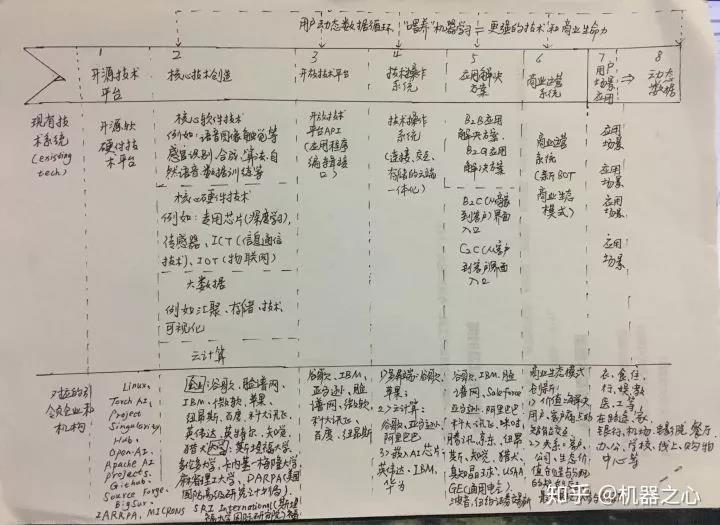 用户动态数据循环,"喂养"机器学习 = 更强的技术和商业生命力
1
开源技术
平台
2
核心技术创造
3
开放技术平台
4
技术操作
系统
5
应用解决
方案
6
商业运营
系统
7
用户
场景
应用
⇒
8
动态
数据
现有技
术系统
(existing
tech)
开源软
硬件技
术平台
核心软件技术
例如:语音图像触觉等
感官识别、合成、算法、自
然语音数据训练等
核心硬件技术
例如:专用芯片(深度学习),
传感器、ICT(信息通信
技术)、IOT(物联网)
大数据
例如汇聚、存储、技术、
可视化
云计算
开放技术
平台API
(应用程序
编程接
口)
技术操作
系统
(连接、交互、
存储的云端
一体化)
B2B应用
解决方案、
B2G应用
解决方案
B2C
到客户)界面
入口
C2C
到客户界面
入口
商业运营
系统
(新BOT
商业生态
模式)
应用
场景
应用
场景
应用
场景
应用
场景
对应的引
领企业和
机构
Linux,
Torch AI,
Project
Singularity
Hub,
Open-AI,
Apache AI
projects,
Github,
Source Forge,
BigSur,
IARRPA, MICRONS
企业:谷歌、脸谱网、
IBM、微软、苹果、
纽昂斯、百度、科大讯飞、
英伟达、英特尔、知晓、
猎犬 斯坦福大学、
多伦多大学、卡内基-梅隆大学、
麻省理工大学、DARPA(美国
国防高级研究计划局)、
SRI International(斯坦
谷歌、IBM、
亚马逊、脸
谱网、微软、
科大讯飞、
百度、纽昂斯
谷歌、
苹果
2)云计算:
谷歌、亚马逊、
阿里巴巴
3)嵌入AI芯片:
英伟达、IBM、
华为
谷歌、IBM、脸
谱网、Salesforce、
亚马逊、阿里巴巴、
科大讯飞、
腾讯、京东、纽昂
斯、知晓、猎犬、
USAA,
GE(通用电气)、
商业生态模式
包括:
1)价值:解决
用户、客户
2)关系:客户、
公司、生态价
衣、食、住、
行、娱、教、
医、工等,
银行、机场、电影院、餐厅、
办公、学校、线上、购物
中心等
知乎 @机器之心